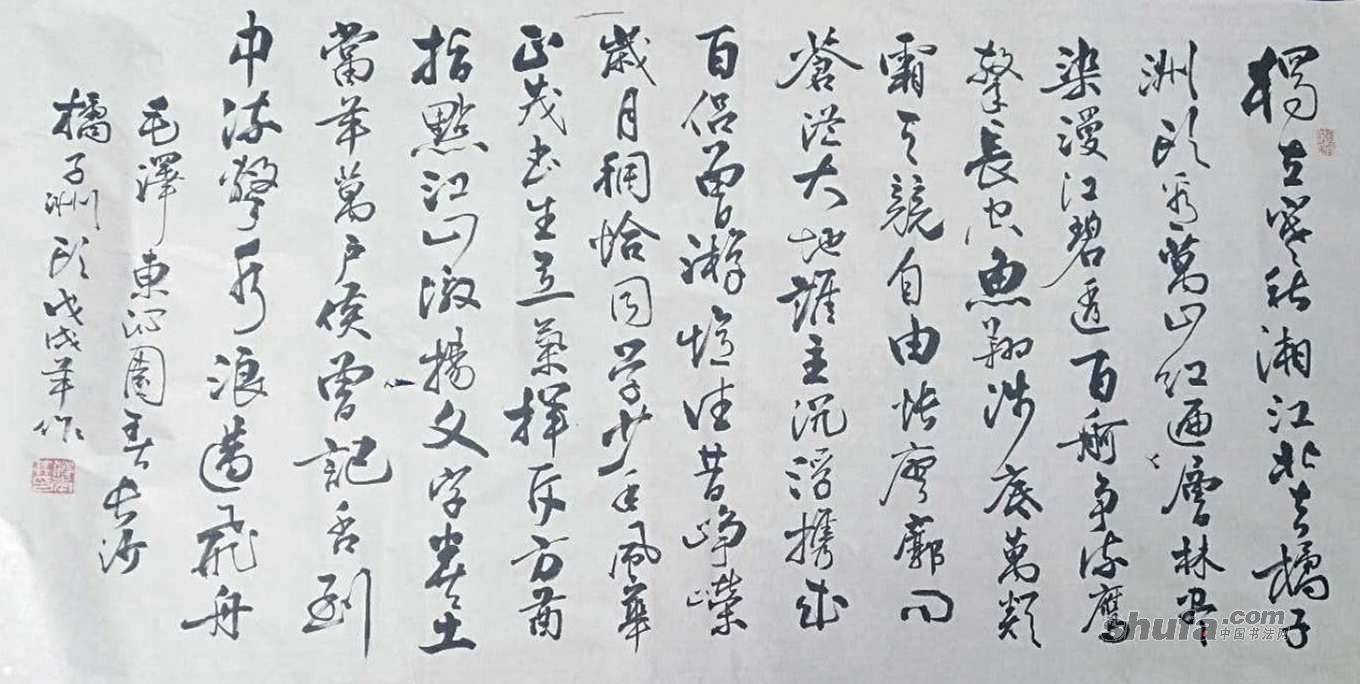 獨立寒秋湘江北去橘子
洲頭看萬山紅遍層林盡
染漫江碧透百舸争流鷹
擊長空魚翔淺底萬類
霜天競自由悵寥廓問
蒼茫大地誰主沉浮携來
百侣曾游憶往昔崢嶸
歲月稠恰同學少年風華
正茂書生意氣揮斥方遒
指點江山激揚文字糞土
當年萬户侯曾記否到
中流擊水浪遏飛舟
毛澤東沁園春長沙
橘子洲頭戊戌年作
shufa.com
中国书法网